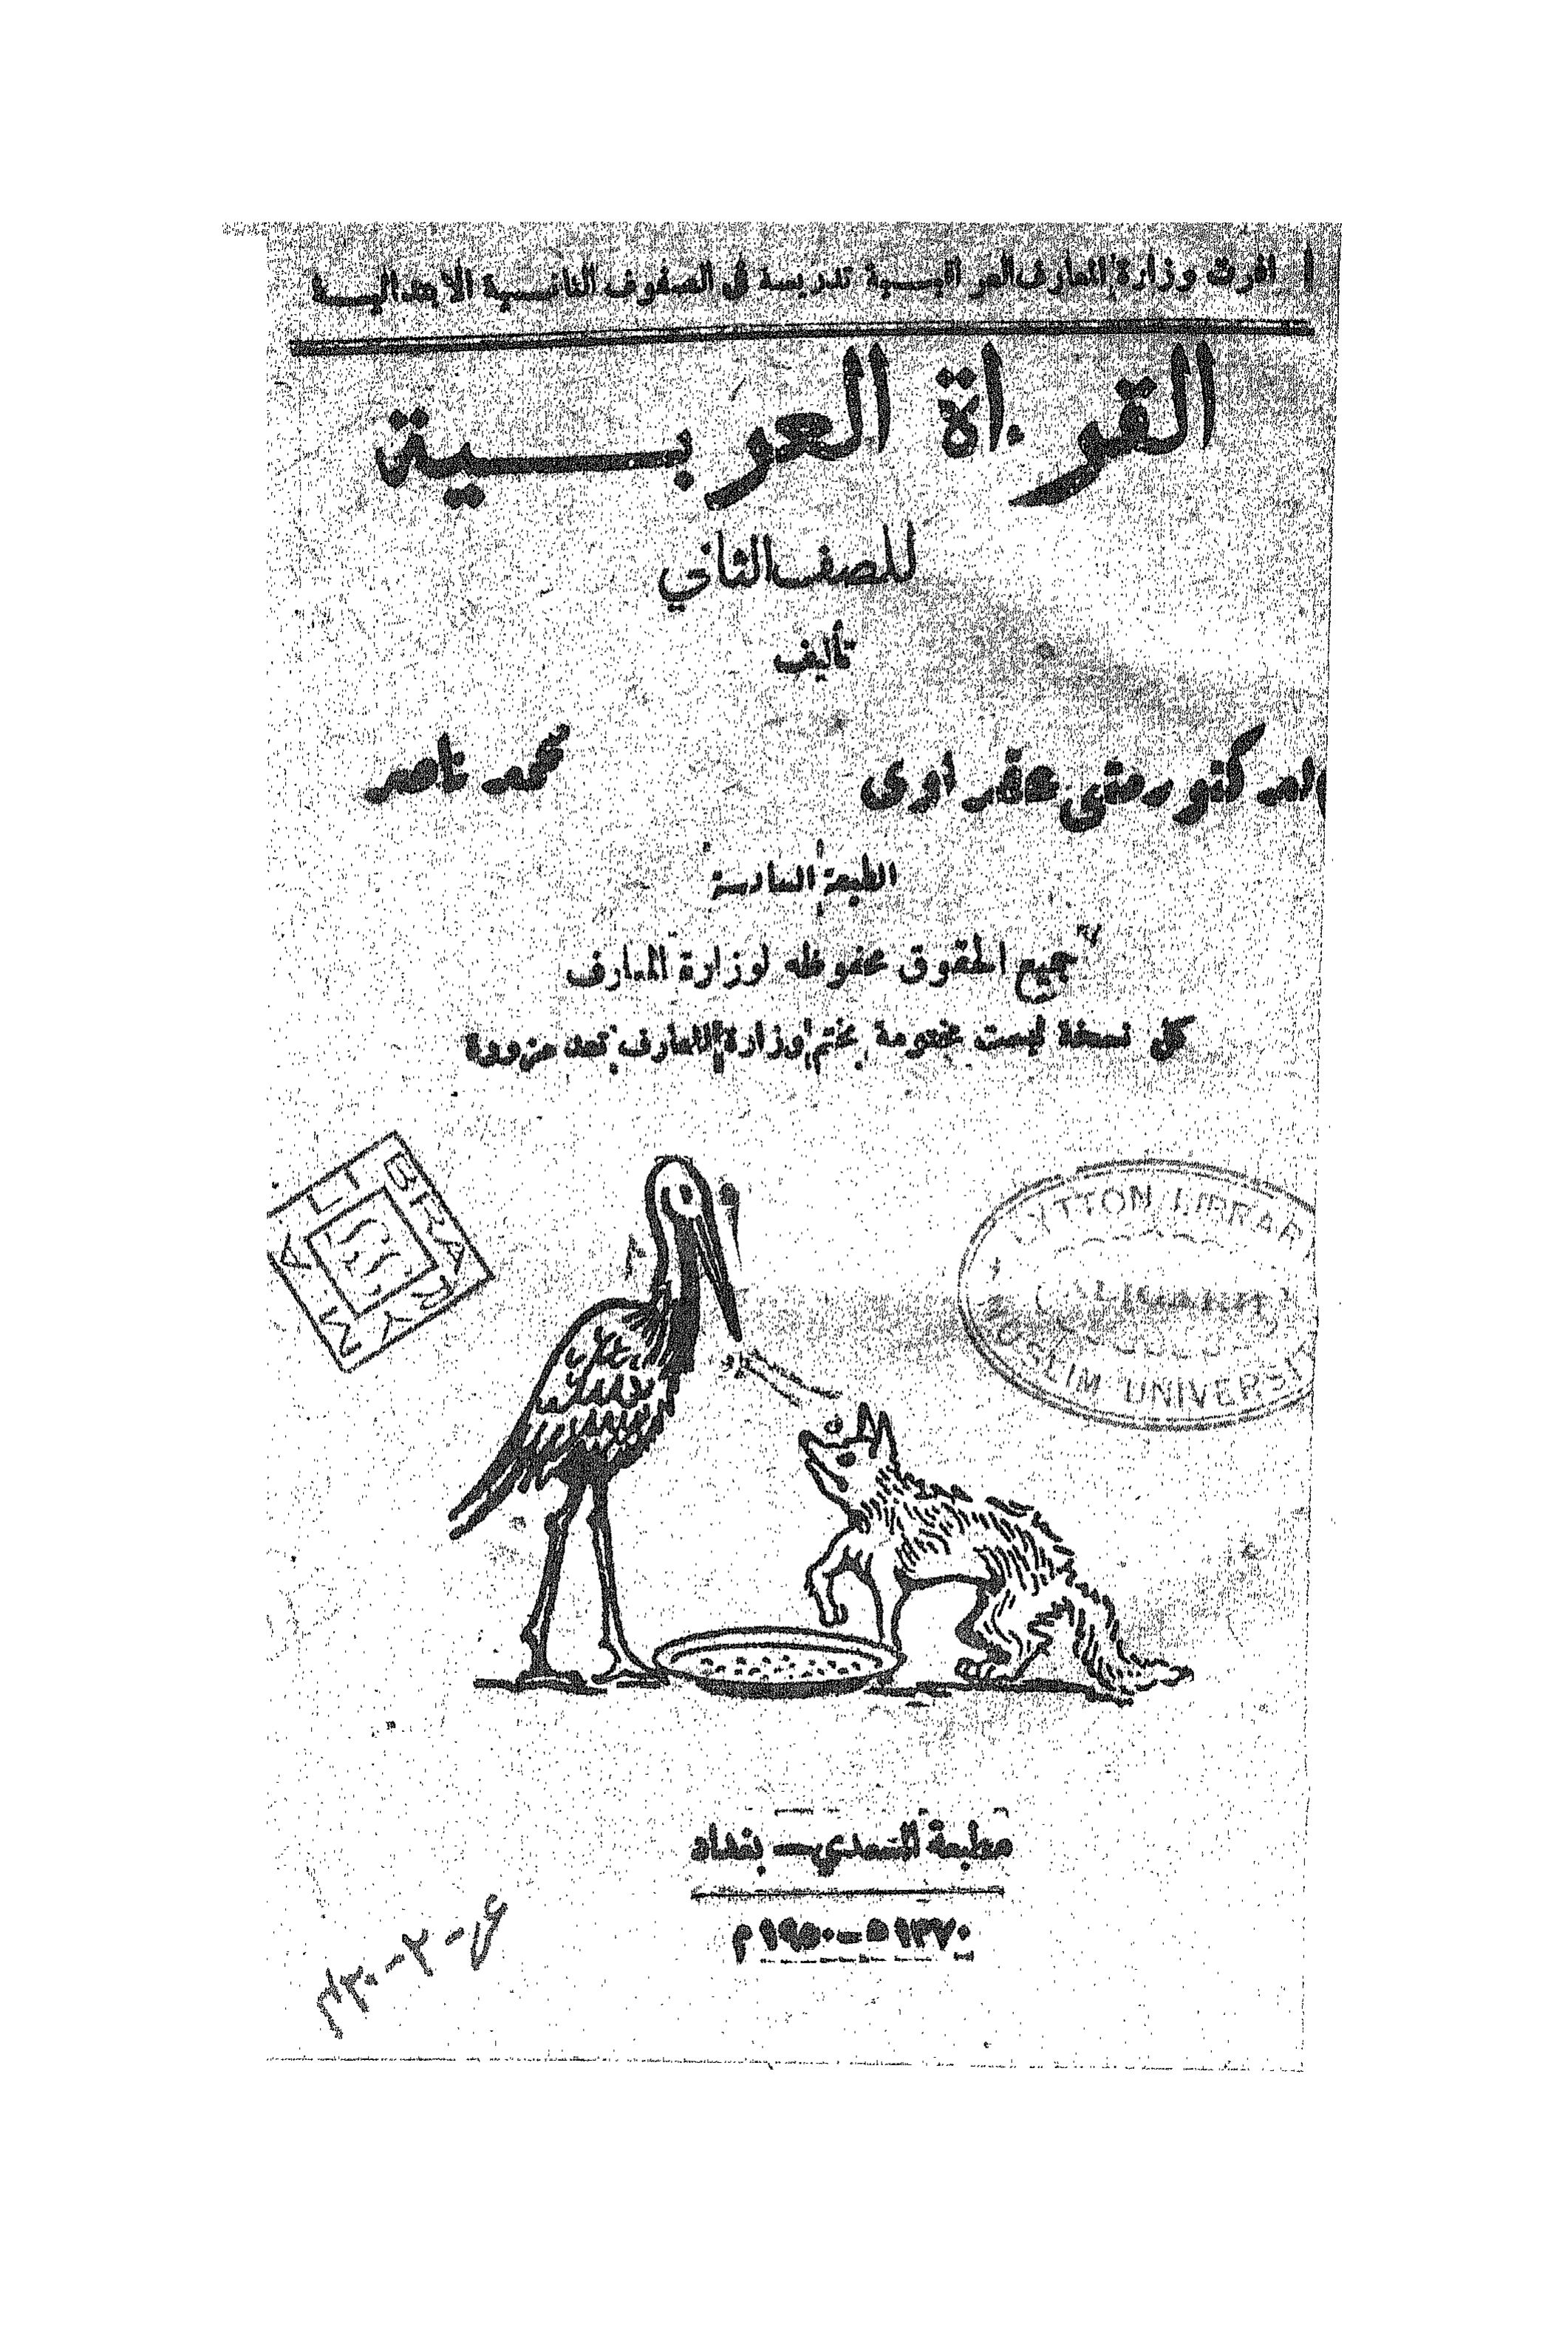 اقرت وزارة المعارف العراقية تدريسه في الصفوف الثانية الابتدائية
القراءة العربية
للصف الثاني
تأليف
الدكتور متي عقراوي
محمد ناصر
الطبعة السادسة
جميع الحقوق محفوظه لوزارة المعارف
كل نسخة ليست مختومة بختم وزارة المعارف تعد مزورة
LIBRARY
LYTTON LIBRAR
ALIGARH
MUSLIM UNIVERSIT
مطبعة السعدي - بغداد
١٣٧٠ ه - ١٩٥٠ م